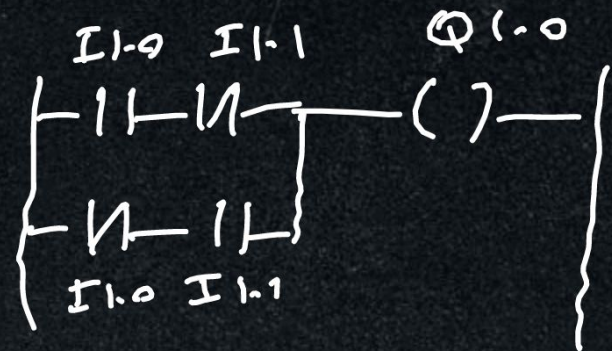 I1.0 I1.1 Q1.0
I1.0 I1.1